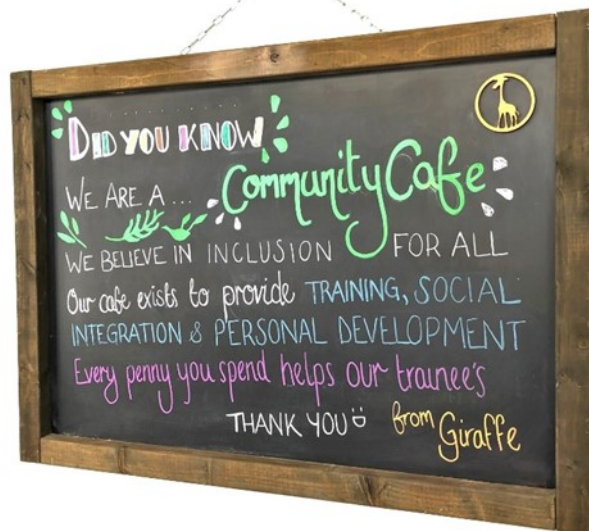 DID YOU KNOW
WE ARE A... Community Cafe
WE BELIEVE IN INCLUSION FOR ALL
Our cafe exists to provide TRAINING, SOCIAL
INTEGRATION & PERSONAL DEVELOPMENT
Every penny you spend helps our trainee's
THANK YOU from Giraffe